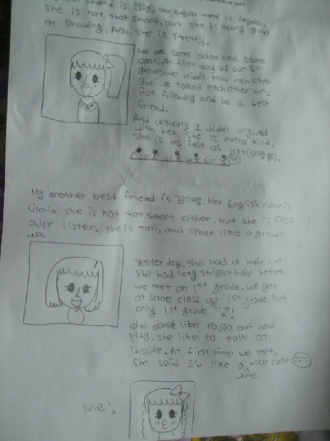 She is not that smart, but she is really good
at Drawing. Also, she is Pretty.
We are same school and same
class. At first day of our 5th
grade we didn't know each other.
But we talked each other and
got friendly and be a best
friend.
And actually I didn't argued
with her, she is extra kind.
she is as fast as
My another best friend is Her English name is
Gloria, she is not that smart either, but she is like
older sister, she is tall, and speak like a grown
up.
Yesterday, she had a hair cut.
she had long stright hair before.
we met on 1st grade. we got
at same class at 1st grade. But
only 1st grade
she doesn't like to go out and
play, she like to talk at
inside. At first time we met,
she said I'd like a
Me!